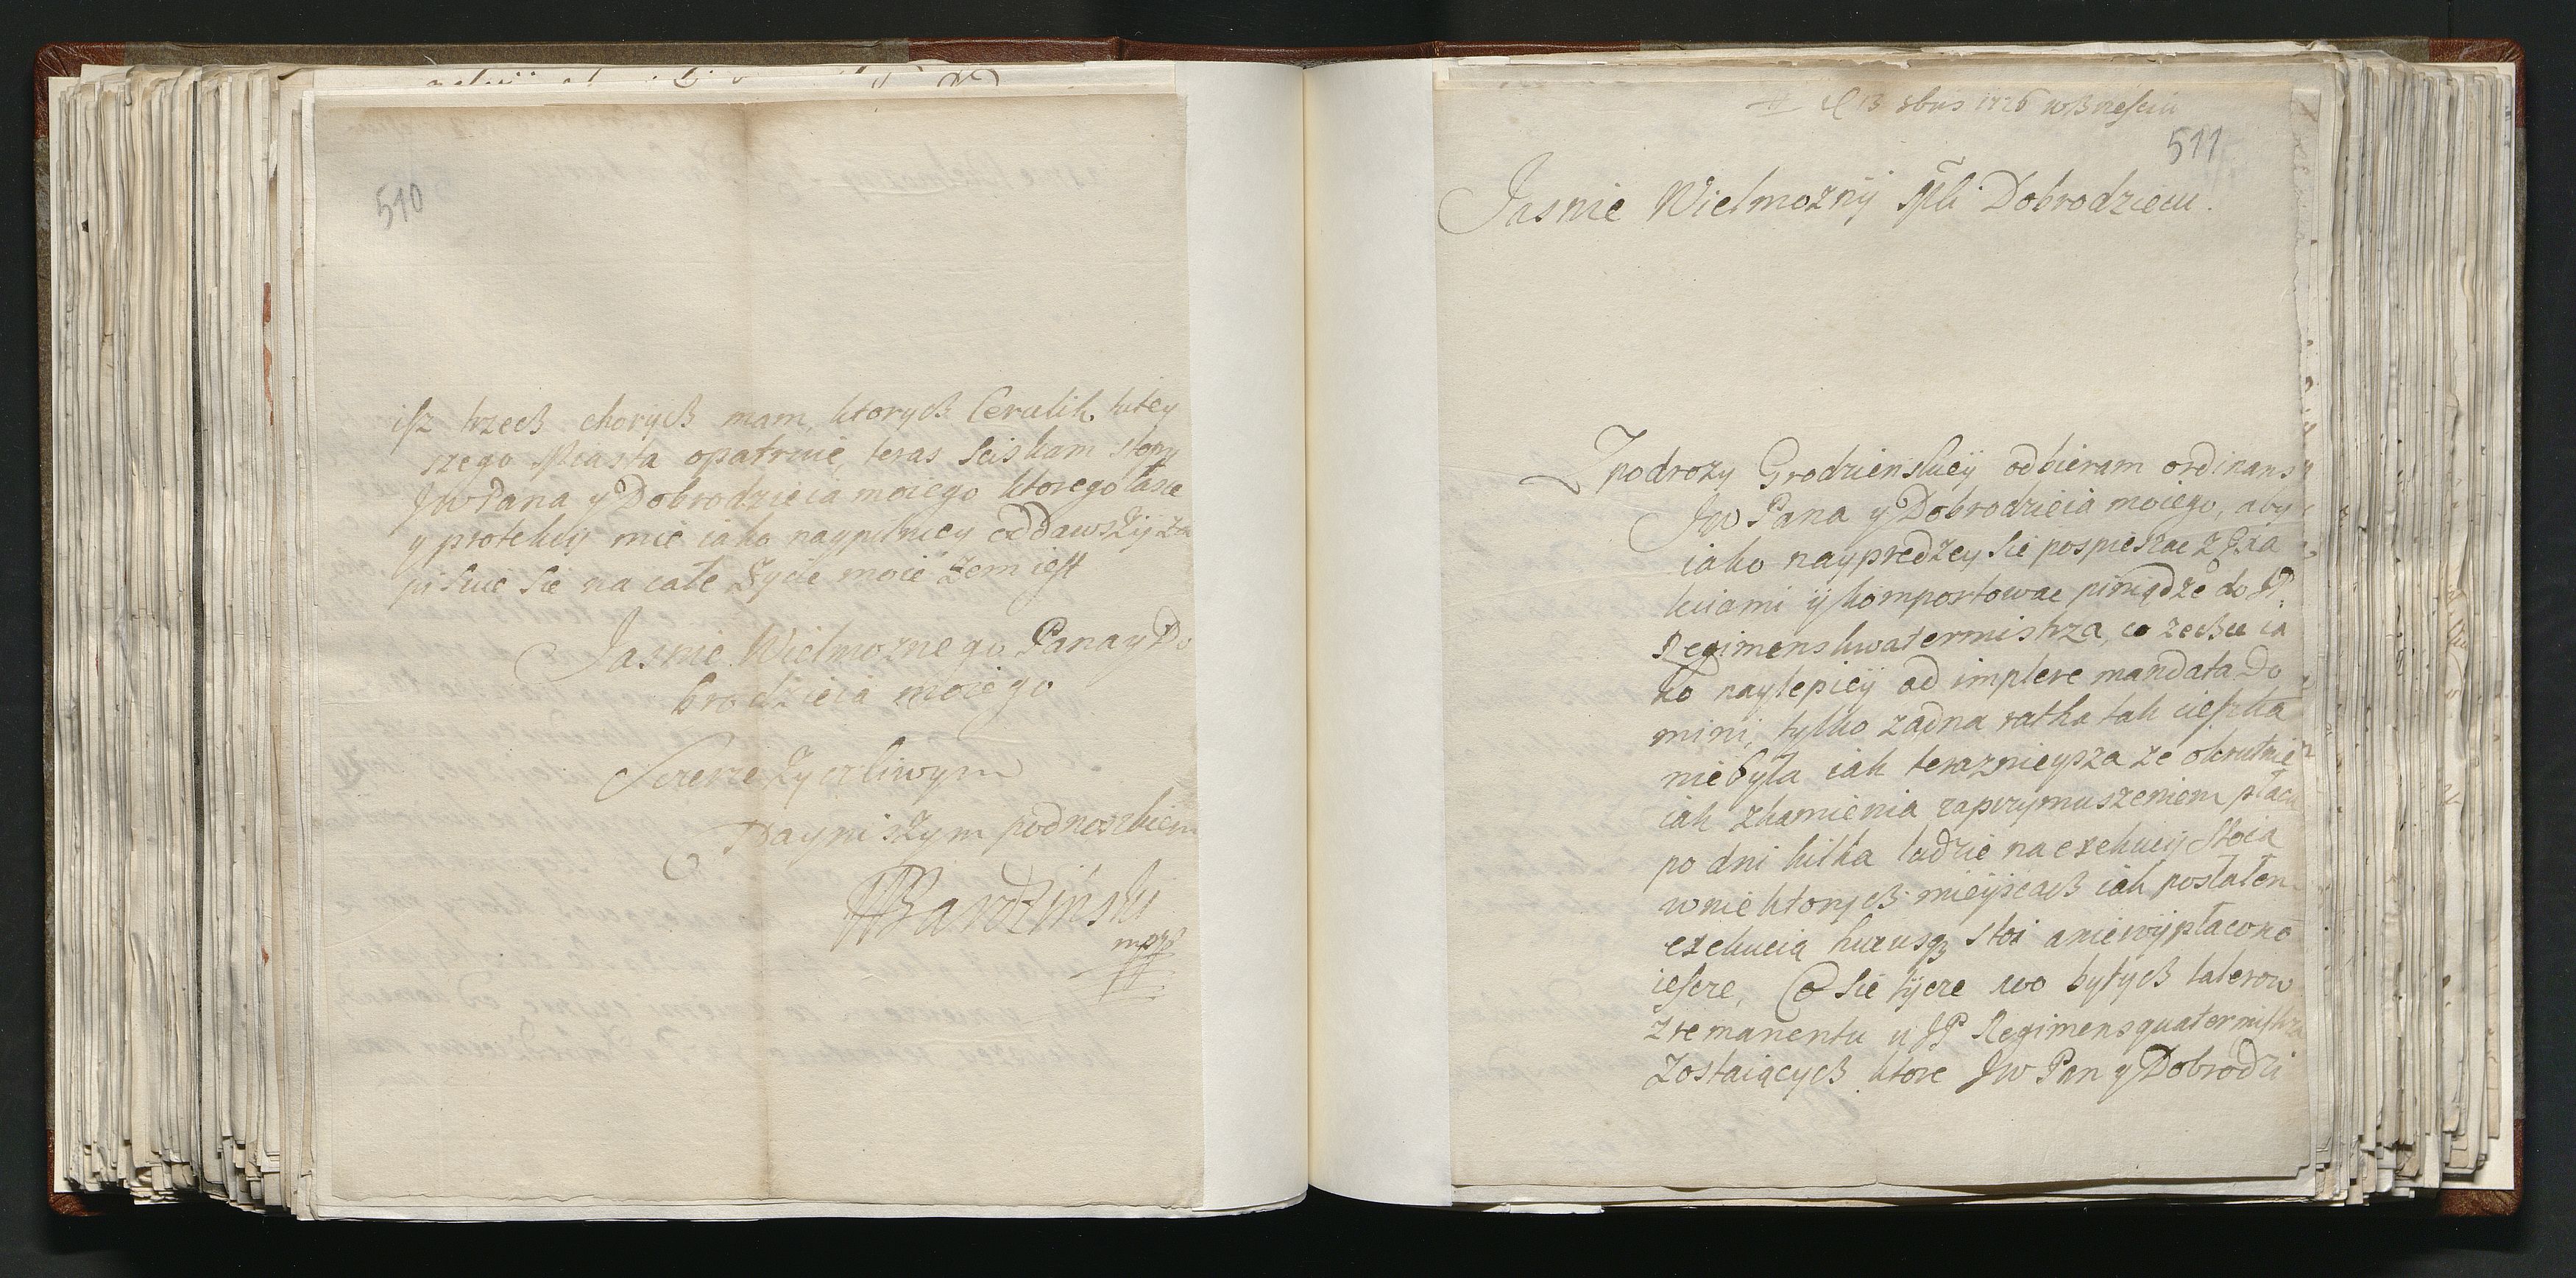 510
isz trzech chorych mam, ktorych Cerulik tutey
szego Miasta opatruie, teras sciskam stopy
JW Pana y Dobrodzieia moiego ktorego łasce
y protekcij mie iako naypilniey oddawszÿ za
pisuie sie na całe zycie moie zem iest
Jasnie Wielmoznego Pana y Do
brodzieia moiego
Szczerze zyczliwym
Nayniszym podnoszkiem
Bardzinski
mpp
d 13 8bris 1726 w Brzesciu
511
Jasnie Wielmoznÿ Dobrodzieiu.
Z podrozy Grodzienskieÿ odbieram ordinans
JW Pana y Dobrodzieia moiego, aby
iako naypredzey sie pospieszac z
kciami ÿ komportowac piniądze do P.
Regimenskwatermistrza, co zechce ia
ko naylepieÿ ad implere mandata Do
mini, tylko zadna ratka tak cieszka
nie była iak teraznieysza ze okrutnie
iak zkamienia zaprzymuszeniem płacu
po dni kilka ludzie na exekucij stoia
w nie ktorych mieÿscach iak posłałem
exekucią hucusq stoi a nie wÿpłacono
iescze, Co sie tÿcze sto bytÿch talerow
z remanentu u JP Regimensquatermistrza
Zostaiącÿch ktore JW Pan y Dobrodzi